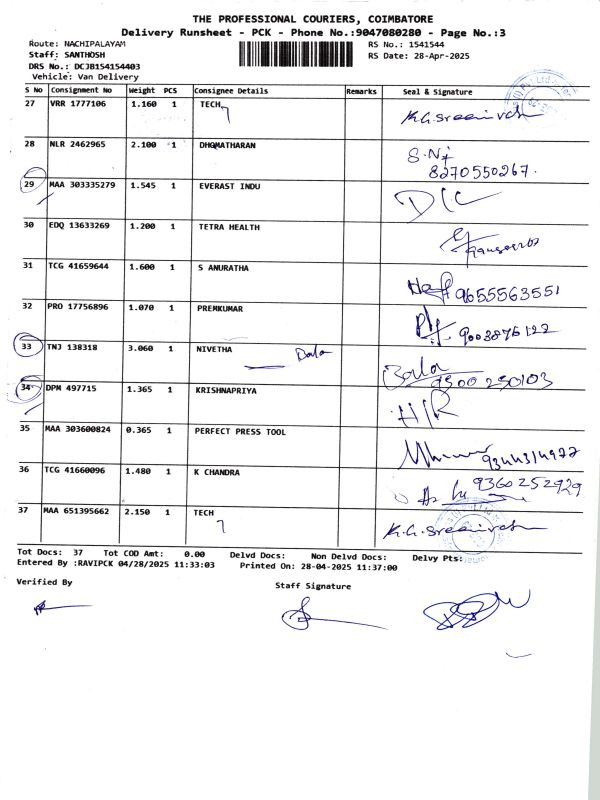 THE PROFESSIONAL COURIERS, COIMBATORE
Delivery Runsheet - PCK - Phone No.:9047080280 - Page No.:3
Route: NACHIPALAYAM RS No.: 1541544
Staff: SANTHOSH RS Date: 28-Apr-2025
DRS No.: DCJB154154403
Vehicle: Van Delivery
S No Consignment No Weight PCS Consignee Details Remarks Seal & Signature
27 VRR 1777106 1.160 1 TECH K.G.Sreenivasan
28 NLR 2462965 2.100 1 DHOMATHARAN
8270550267.
29 MAA 303335279 1.545 1 EVERAST INDU
30 EDQ 13633269 1.200 1 TETRA HEALTH
31 TCG 41659644 1.600 1 S ANURATHA 9655563551
32 PRO 17756896 1.070 1 PREMKUMAR 9003876122
33 TNJ 138318 3.060 1 NIVETHA Bala
9300250103
34 DPM 497715 1.365 1 KRISHNAPRIYA H/R
35 MAA 303600824 0.365 1 PERFECT PRESS TOOL 9344314977
36 TCG 41660096 1.480 1 K CHANDRA 9360252929
37 MAA 651395662 2.150 1 TECH K.G.Sreenivasan
Tot Docs: 37 Tot COD Amt: 0.00 Delvd Docs: Non Delvd Docs: Delvy Pts:
Entered By :RAVIPCK 04/28/2025 11:33:03 Printed On: 28-04-2025 11:37:00
Verified By Staff Signature